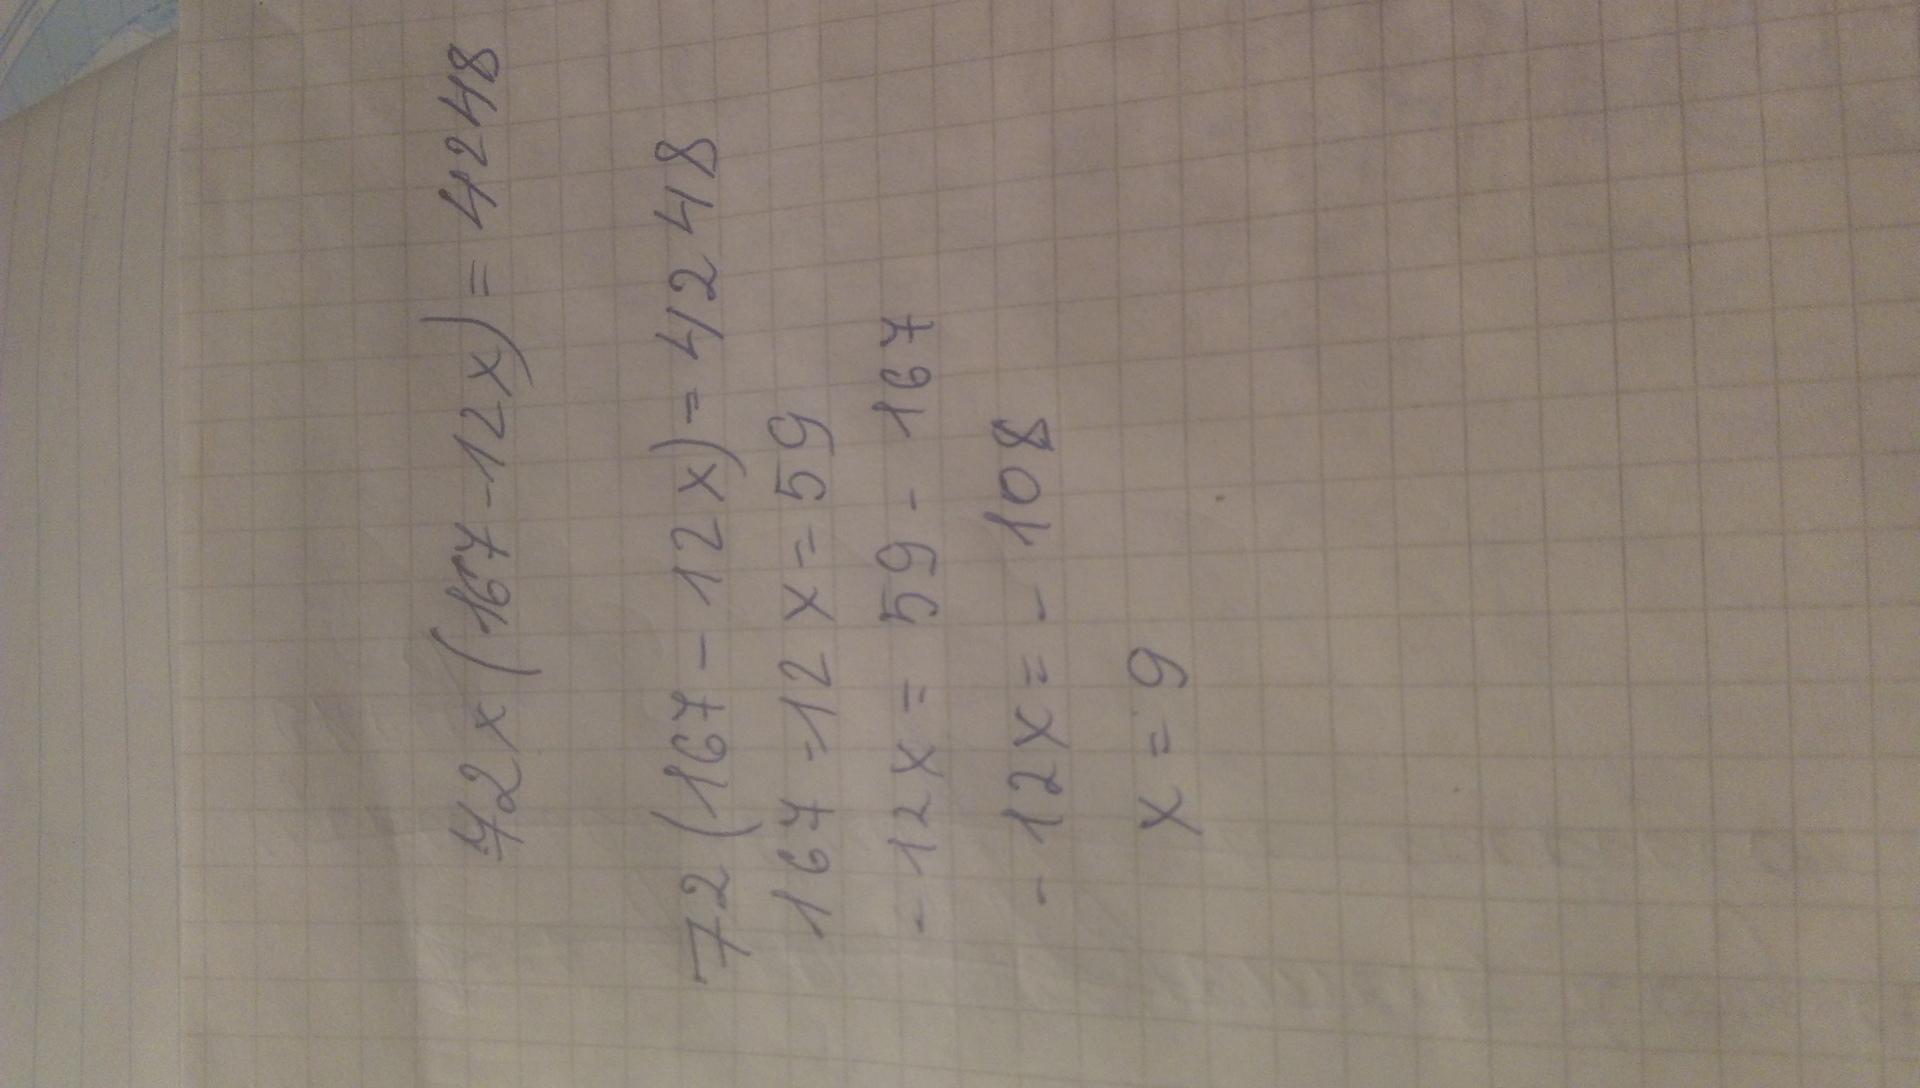 72x(167-12x)=4248
72(167-12x)=4248
167-12x=59
-12x=59-167
-12x=-108
x=9